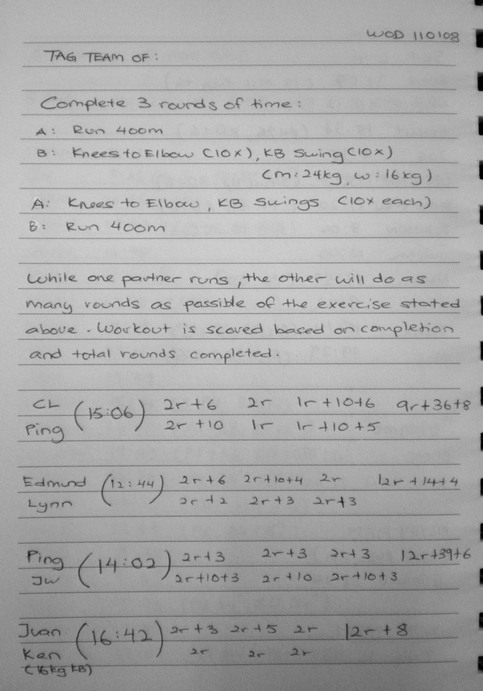 WOD 110108
TAG TEAM OF:
Complete 3 rounds of time:
A: Run 400m
B: Knees to Elbow (10x), KB Swing (10x)
(m: 24kg, w: 16kg)
A: Knees to Elbow, KB Swings (10x each)
B: Run 400m
While one partner runs, the other will do as
many rounds as possible of the exercise stated
above. Workout is scored based on completion
and total rounds completed.
CL (15:06) 2r+6 2r 1r+10+6 9r+36+8
Ping 2r+10 1r 1r+10+5
Edmund (12:44) 2r+6 2r+10+4 2r 12r+14+4
Lynn 2r+2 2r+3 2r+3
Ping (14:02) 2r+3 2r+3 2r+3 12r+39+6
JW 2r+10+3 2r+10 2r+10+3
Juan (16:42) 2r+3 2r+5 2r 12r+8
Ken 2r 2r 2r
(16kg KB)